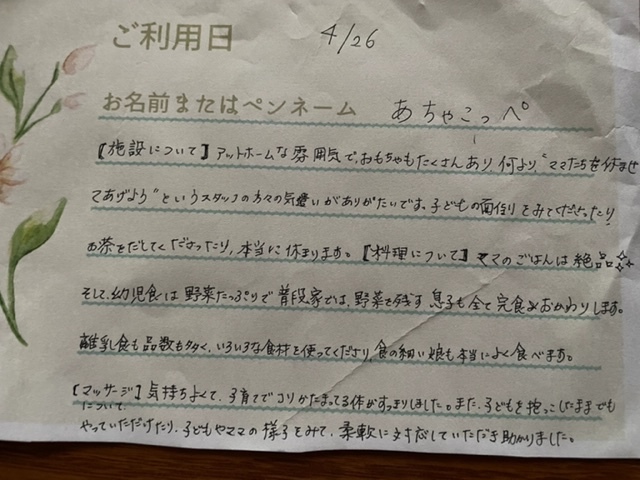 ご利用日 4/26
お名前またはペンネーム あちゃこっぺ
【施設について】アットホームな雰囲気で、おもちゃもたくさんあり、何より、"ママたちを休ませ
てあげよう"というスタッフの方々の気遣いがありがたいです。子どもの面倒をみてくださったり、
お茶をだしてくださったり、本当に休まります。【料理について】ママのごはんは絶品✨
そして、幼児食は野菜たっぷりで普段家では、野菜を残す息子も全て完食&おかわりします。
離乳食も品数も多く、いろいろな食材を使ってくださり、食の細い娘も本当によく食べます。
【マッサージ】気持ちよくて、子育てでコリかたまってる体がすっきりしました。また、子どもを抱っこしたままでも
について
やっていただけたり、子どもやママの様子をみて、柔軟に対応していただき助かりました。